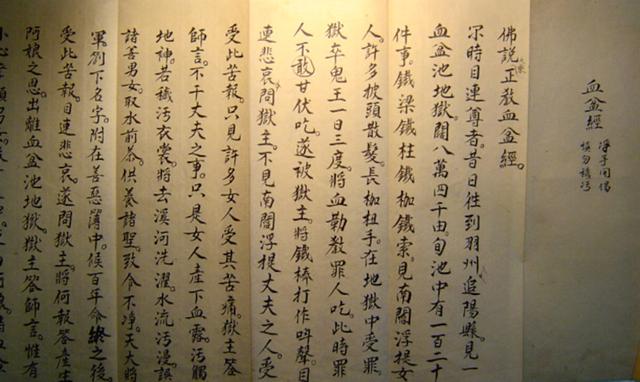 血盆經
佛說正教血盆經。
尔時目連尊者。昔日徃到羽州追陽縣。見一
血盆池地獄。闊八萬四千由旬。池中有一百二十
件事。鐵梁鐵柱鐵枷鐵索。見南閻浮提女
人。許多披頭散髮。長枷杻手。在地獄中受罪。
獄卒鬼王一日三度。將血勒教罪人吃。此時罪
人不敢甘伏吃。遂被獄主。將鐵棒打作呌聲。目
連悲哀。問獄主。不見南閻浮提丈夫之人。受
受此苦報。只見許多女人受其苦痛。獄主答
師言。不干丈夫之事。只是女人產下血露。污觸
地神。若穢污衣裳。將去溪河洗濯。水流污漫。誤
諸善男女。取水煎茶。供養諸聖。致令不净。天大將
軍。劄下名字。附在善惡簿中。候百年命終之後。
受此苦報。目連悲哀。遂問獄主。將何報答產生
阿娘之恩。出離血盆池地獄。獄主答師言。惟有